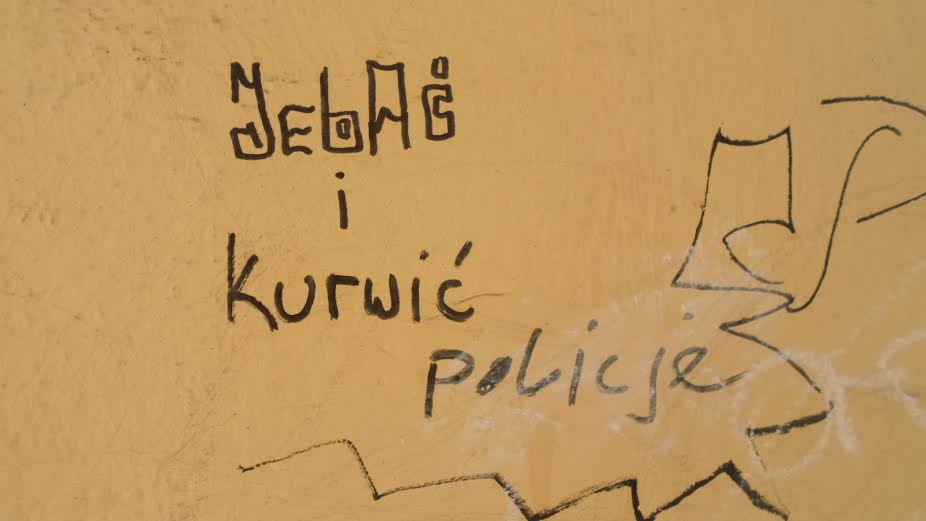 JEbAĆ
i
kurwić
policje